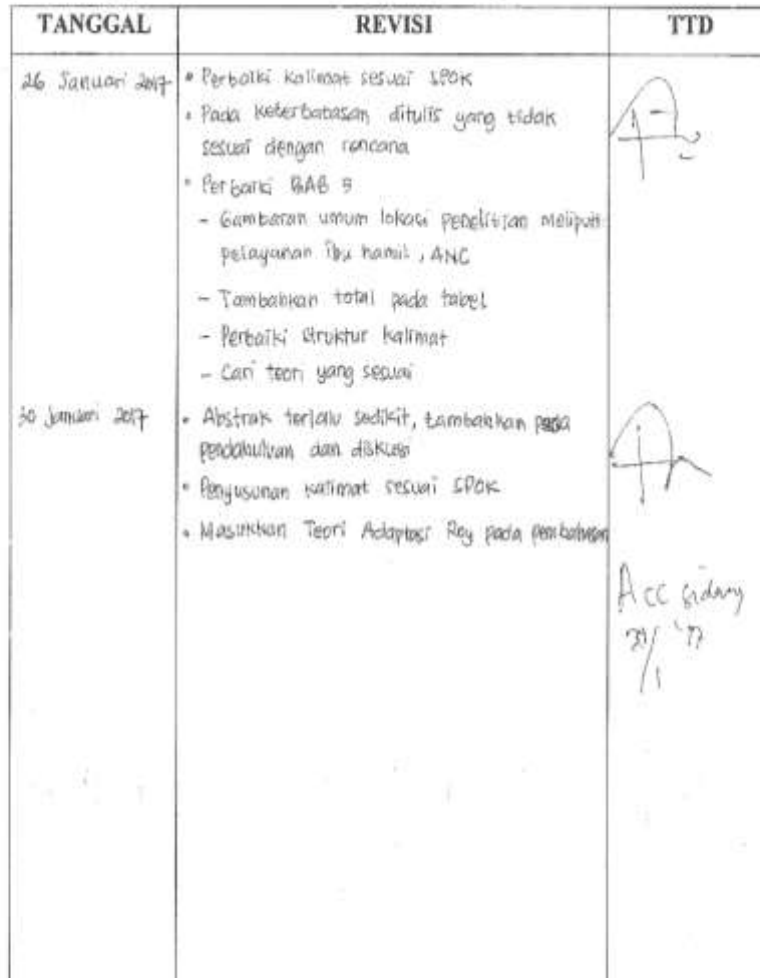 TANGGAL REVISI TTD
26 Januari 2017 • Perbaiki kalimat sesuai SPOK
• Pada keterbatasan ditulis yang tidak
sesuai dengan rencana
• Perbaiki BAB 5
- Gambaran umum lokasi penelitian meliputi
pelayanan ibu hamil, ANC
- Tambahkan total pada tabel
- Perbaiki struktur kalimat
- Cari teori yang sesuai
30 Januari 2017 • Abstrak terlalu sedikit, tambahkan pada
pendahuluan dan diskusi
• Penyusunan kalimat sesuai SPOK
• Masukkan Teori Adaptasi Roy pada pembahasan
Acc sidang